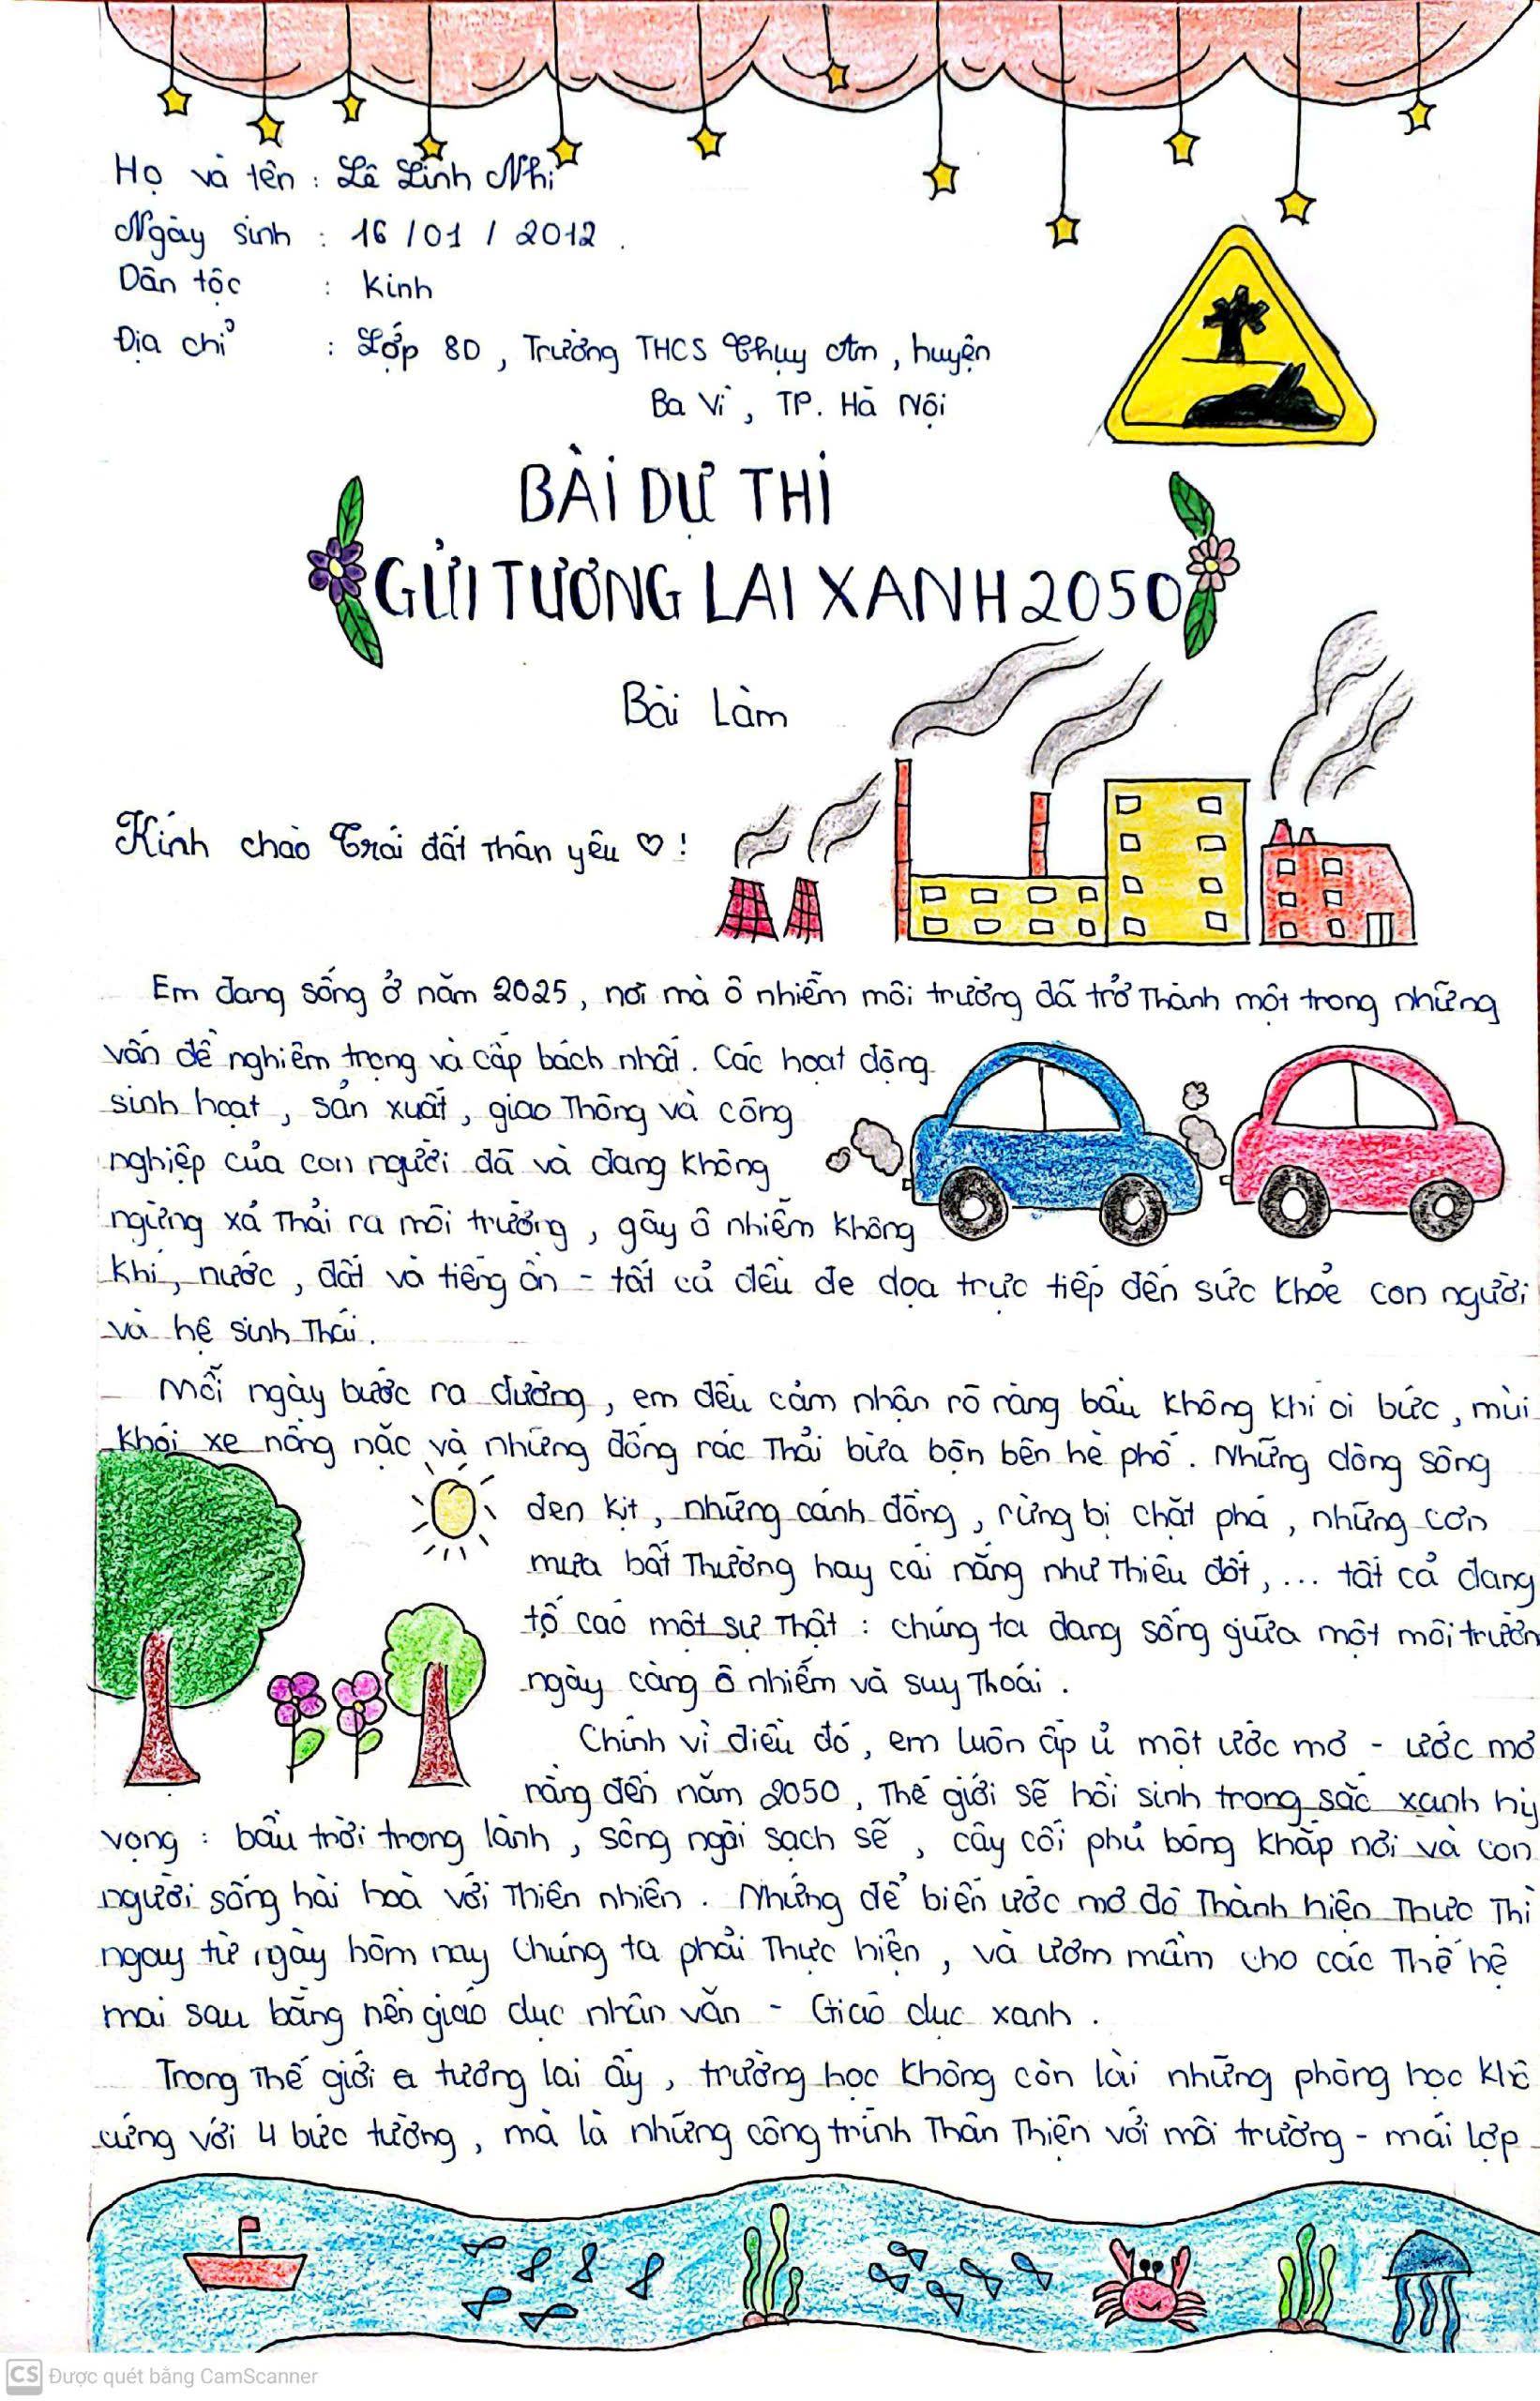 Họ và tên : Lê Linh Nhi
Ngày sinh : 16 / 01 / 2012 .
Dân tộc : Kinh
Địa chỉ : Lớp 8D , Trường THCS Thụy An , huyện
Ba Vì , TP. Hà Nội
BÀI DỰ THI
GỬI TƯƠNG LAI XANH 2050
Bài Làm
Kính chào Trái đất thân yêu ♡ !
Em đang sống ở năm 2025 , nơi mà ô nhiễm môi trường đã trở thành một trong những
vấn đề nghiêm trọng và cấp bách nhất . Các hoạt động
sinh hoạt , sản xuất , giao thông và công
nghiệp của con người đã và đang không
ngừng xả thải ra môi trường , gây ô nhiễm không
khí , nước , đất và tiếng ồn - tất cả đều đe dọa trực tiếp đến sức khỏe con người
và hệ sinh thái .
Mỗi ngày bước ra đường , em đều cảm nhận rõ ràng bầu không khí oi bức , mùi
khói xe nồng nặc và những đống rác thải bừa bộn bên hè phố . Những dòng sông
đen kịt , những cánh đồng , rừng bị chặt phá , những cơn
mưa bất thường hay cái nắng như thiêu đốt , ... tất cả đang
tố cáo một sự thật : chúng ta đang sống giữa một môi trườn
ngày càng ô nhiễm và suy thoái .
Chính vì điều đó , em luôn ấp ủ một ước mơ - ước mơ
rằng đến năm 2050 , thế giới sẽ hồi sinh trong sắc xanh hy
vọng : bầu trời trong lành , sông ngòi sạch sẽ , cây cối phủ bóng khắp nơi và con
người sống hài hoà với thiên nhiên . Nhưng để biến ước mơ đó thành hiện thực thì
ngay từ ngày hôm nay chúng ta phải thực hiện , và ươm mầm cho các thế hệ
mai sau bằng nền giáo dục nhân văn - Giáo dục xanh .
Trong thế giới tương lai ấy , trường học không còn là những phòng học khô
cứng với 4 bức tường , mà là những công trình thân thiện với môi trường - mái lợp
CS Được quét bằng CamScanner